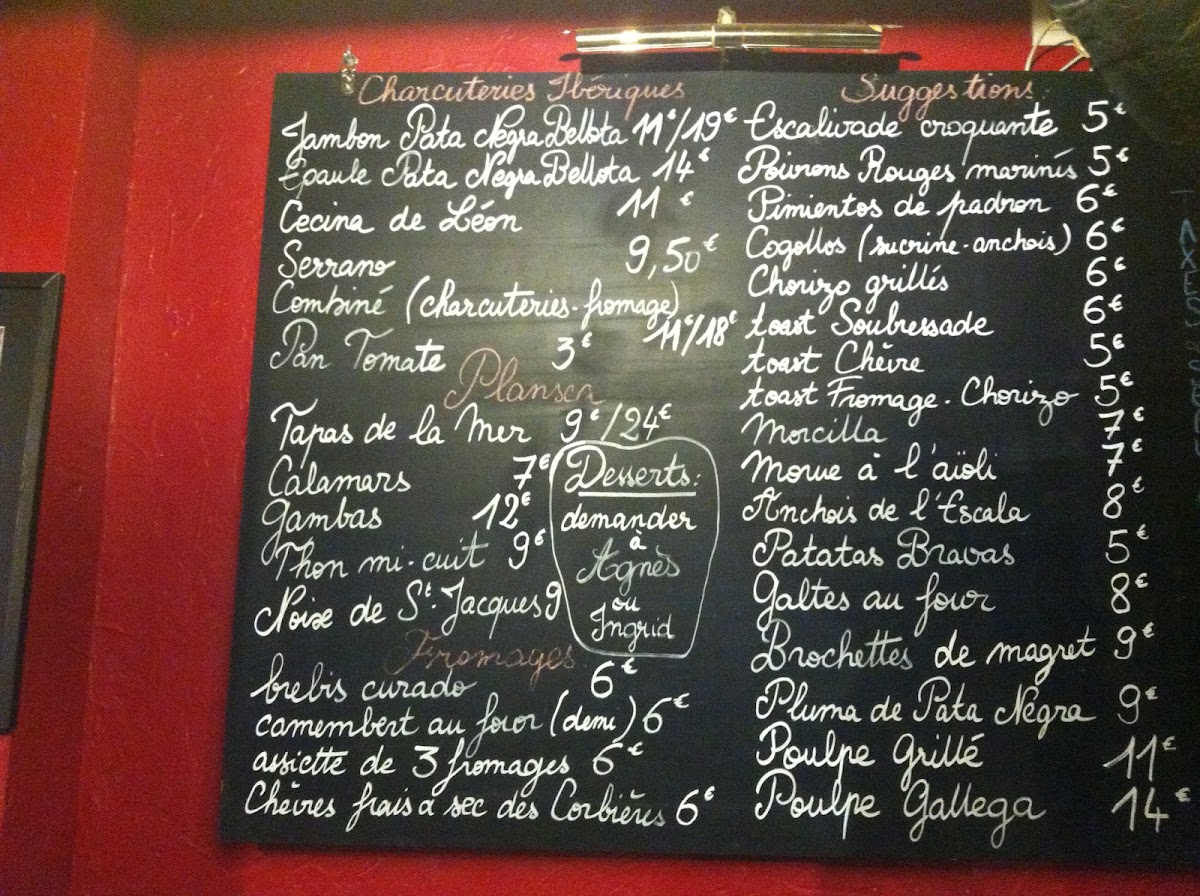 Charcuteries Ibériques
Jambon Pata Negra Bellota 11€/19€
Epaule Pata Negra Bellota 14€
Cecina de Léon 11€
Serrano 9,50€
Combiné (charcuteries-fromage)
11€/18€
Pan Tomate 3€
Plansch
Tapas de la Mer 9€/24€
Calamars 7€
Gambas 12€
Thon mi-cuit 9€
Noix de St. Jacques 9
Desserts:
demander
à
Agnès
ou
Ingrid
Fromages
brebis curado 6€
camembert au four (demi) 6€
assiette de 3 fromages 6€
Chèvres frais a sec des Corbières 6€
Suggestions:
Escalivade croquante 5€
Poivrons Rouges marinés 5€
Pimientos de padron 6€
Cogollos (sucrine-anchois) 6€
Chorizo grillés 6€
toast Soubressade 6€
toast Chèvre 5€
toast Fromage-Chorizo 5€
Morcilla 7€
Morue à l'aïoli 7€
Anchois de l'Escala 8€
Patatas Bravas 5€
Galtes au four 8€
Brochettes de magret 9€
Pluma de Pata Negra 9€
Poulpe Grillé 11€
Poulpe Gallega 14€